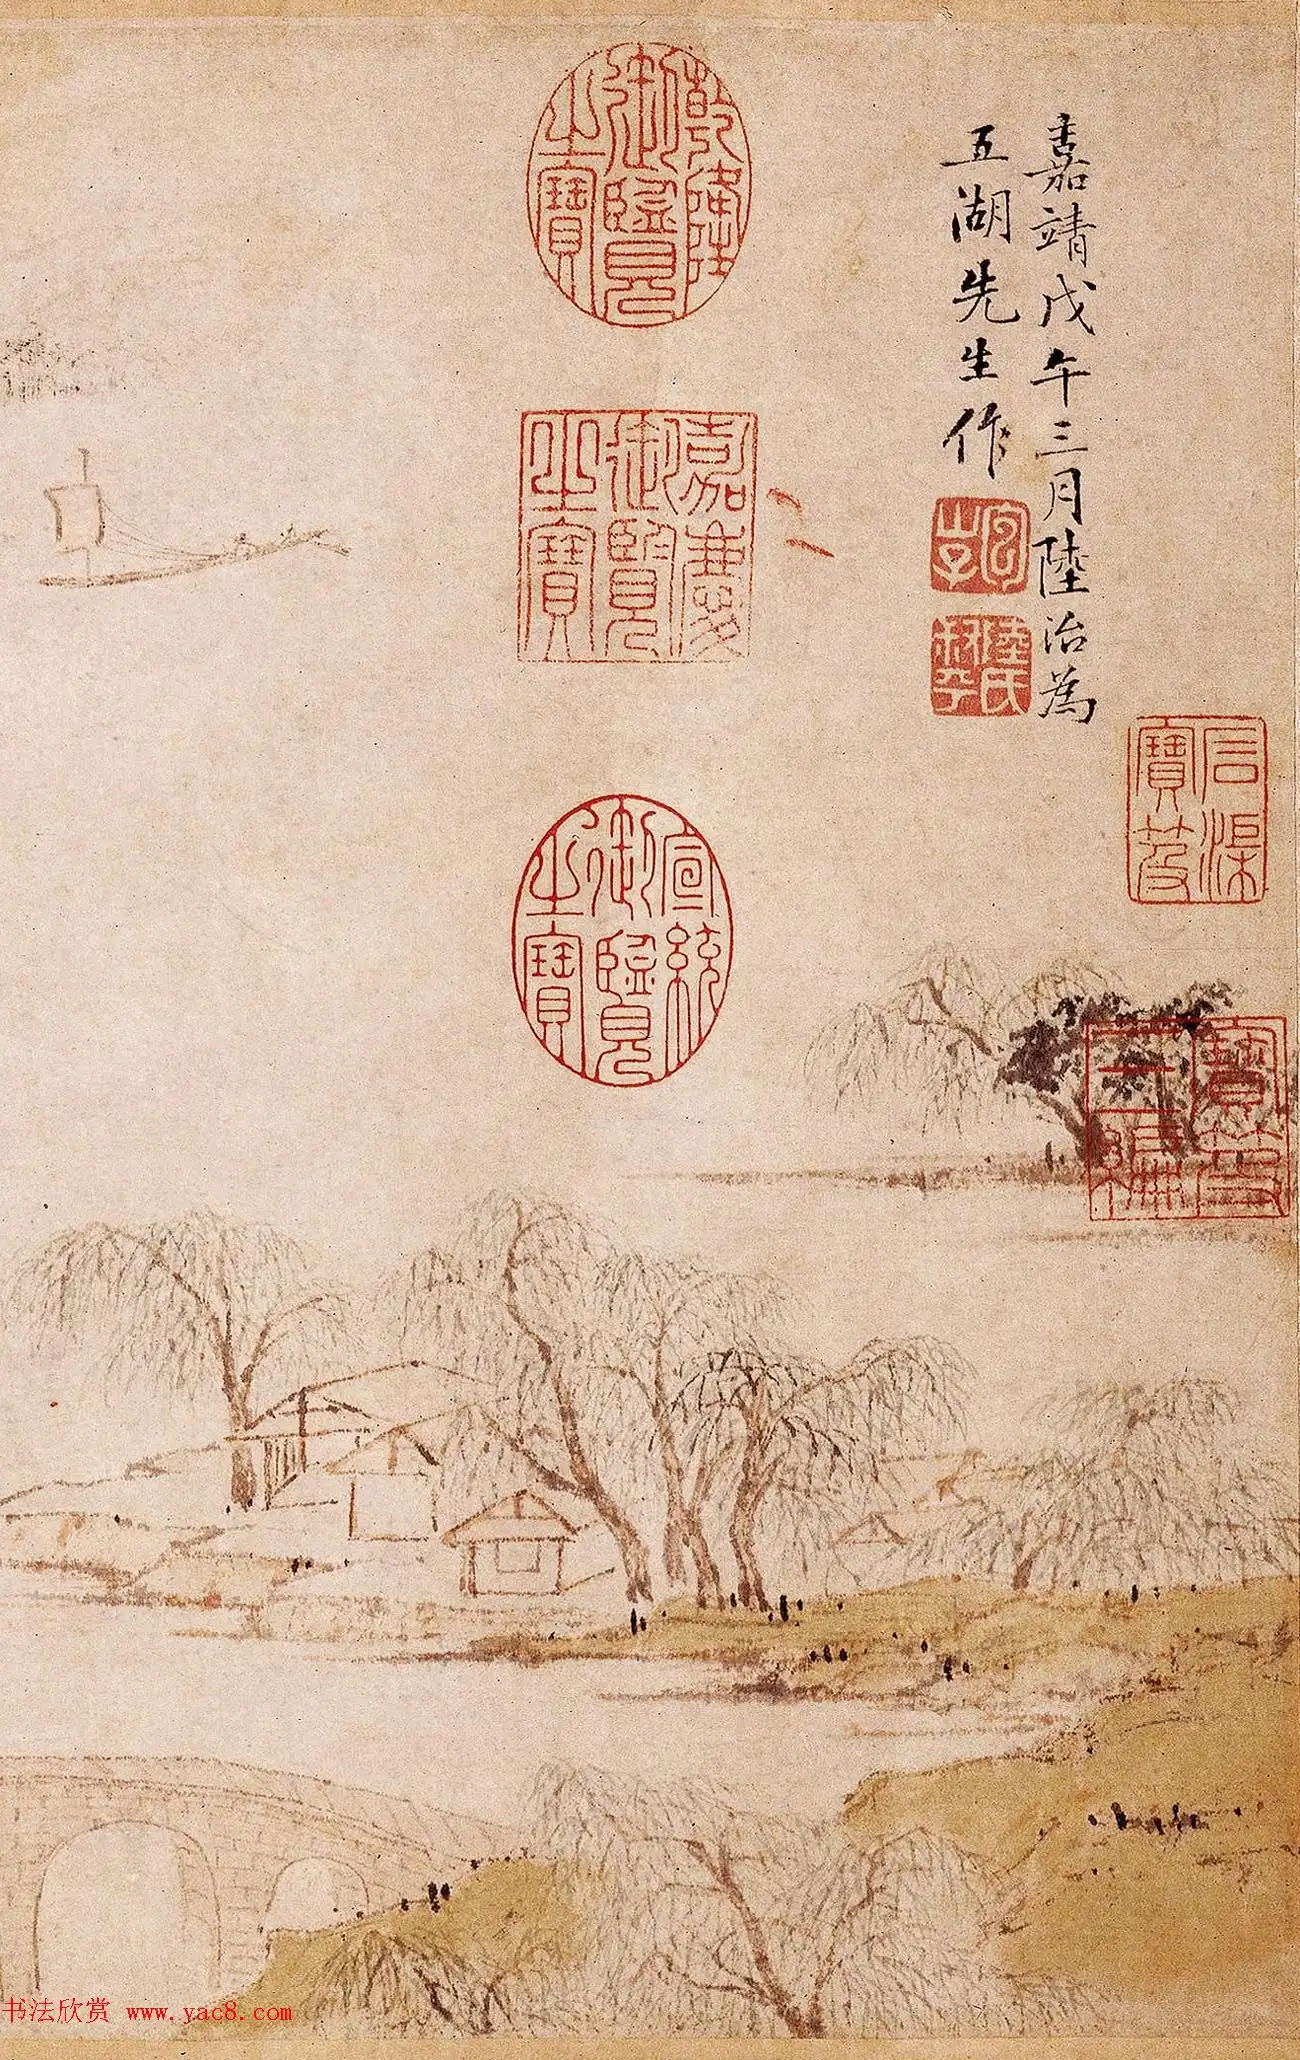 嘉靖戊午三月陸治為
五湖先生作
包山子
陸氏叔平
乾隆御覽之寶
嘉慶御覽之寶
宣統御覽之寶
石渠寶笈
寶笈三編
书法欣赏 www.yac8.com